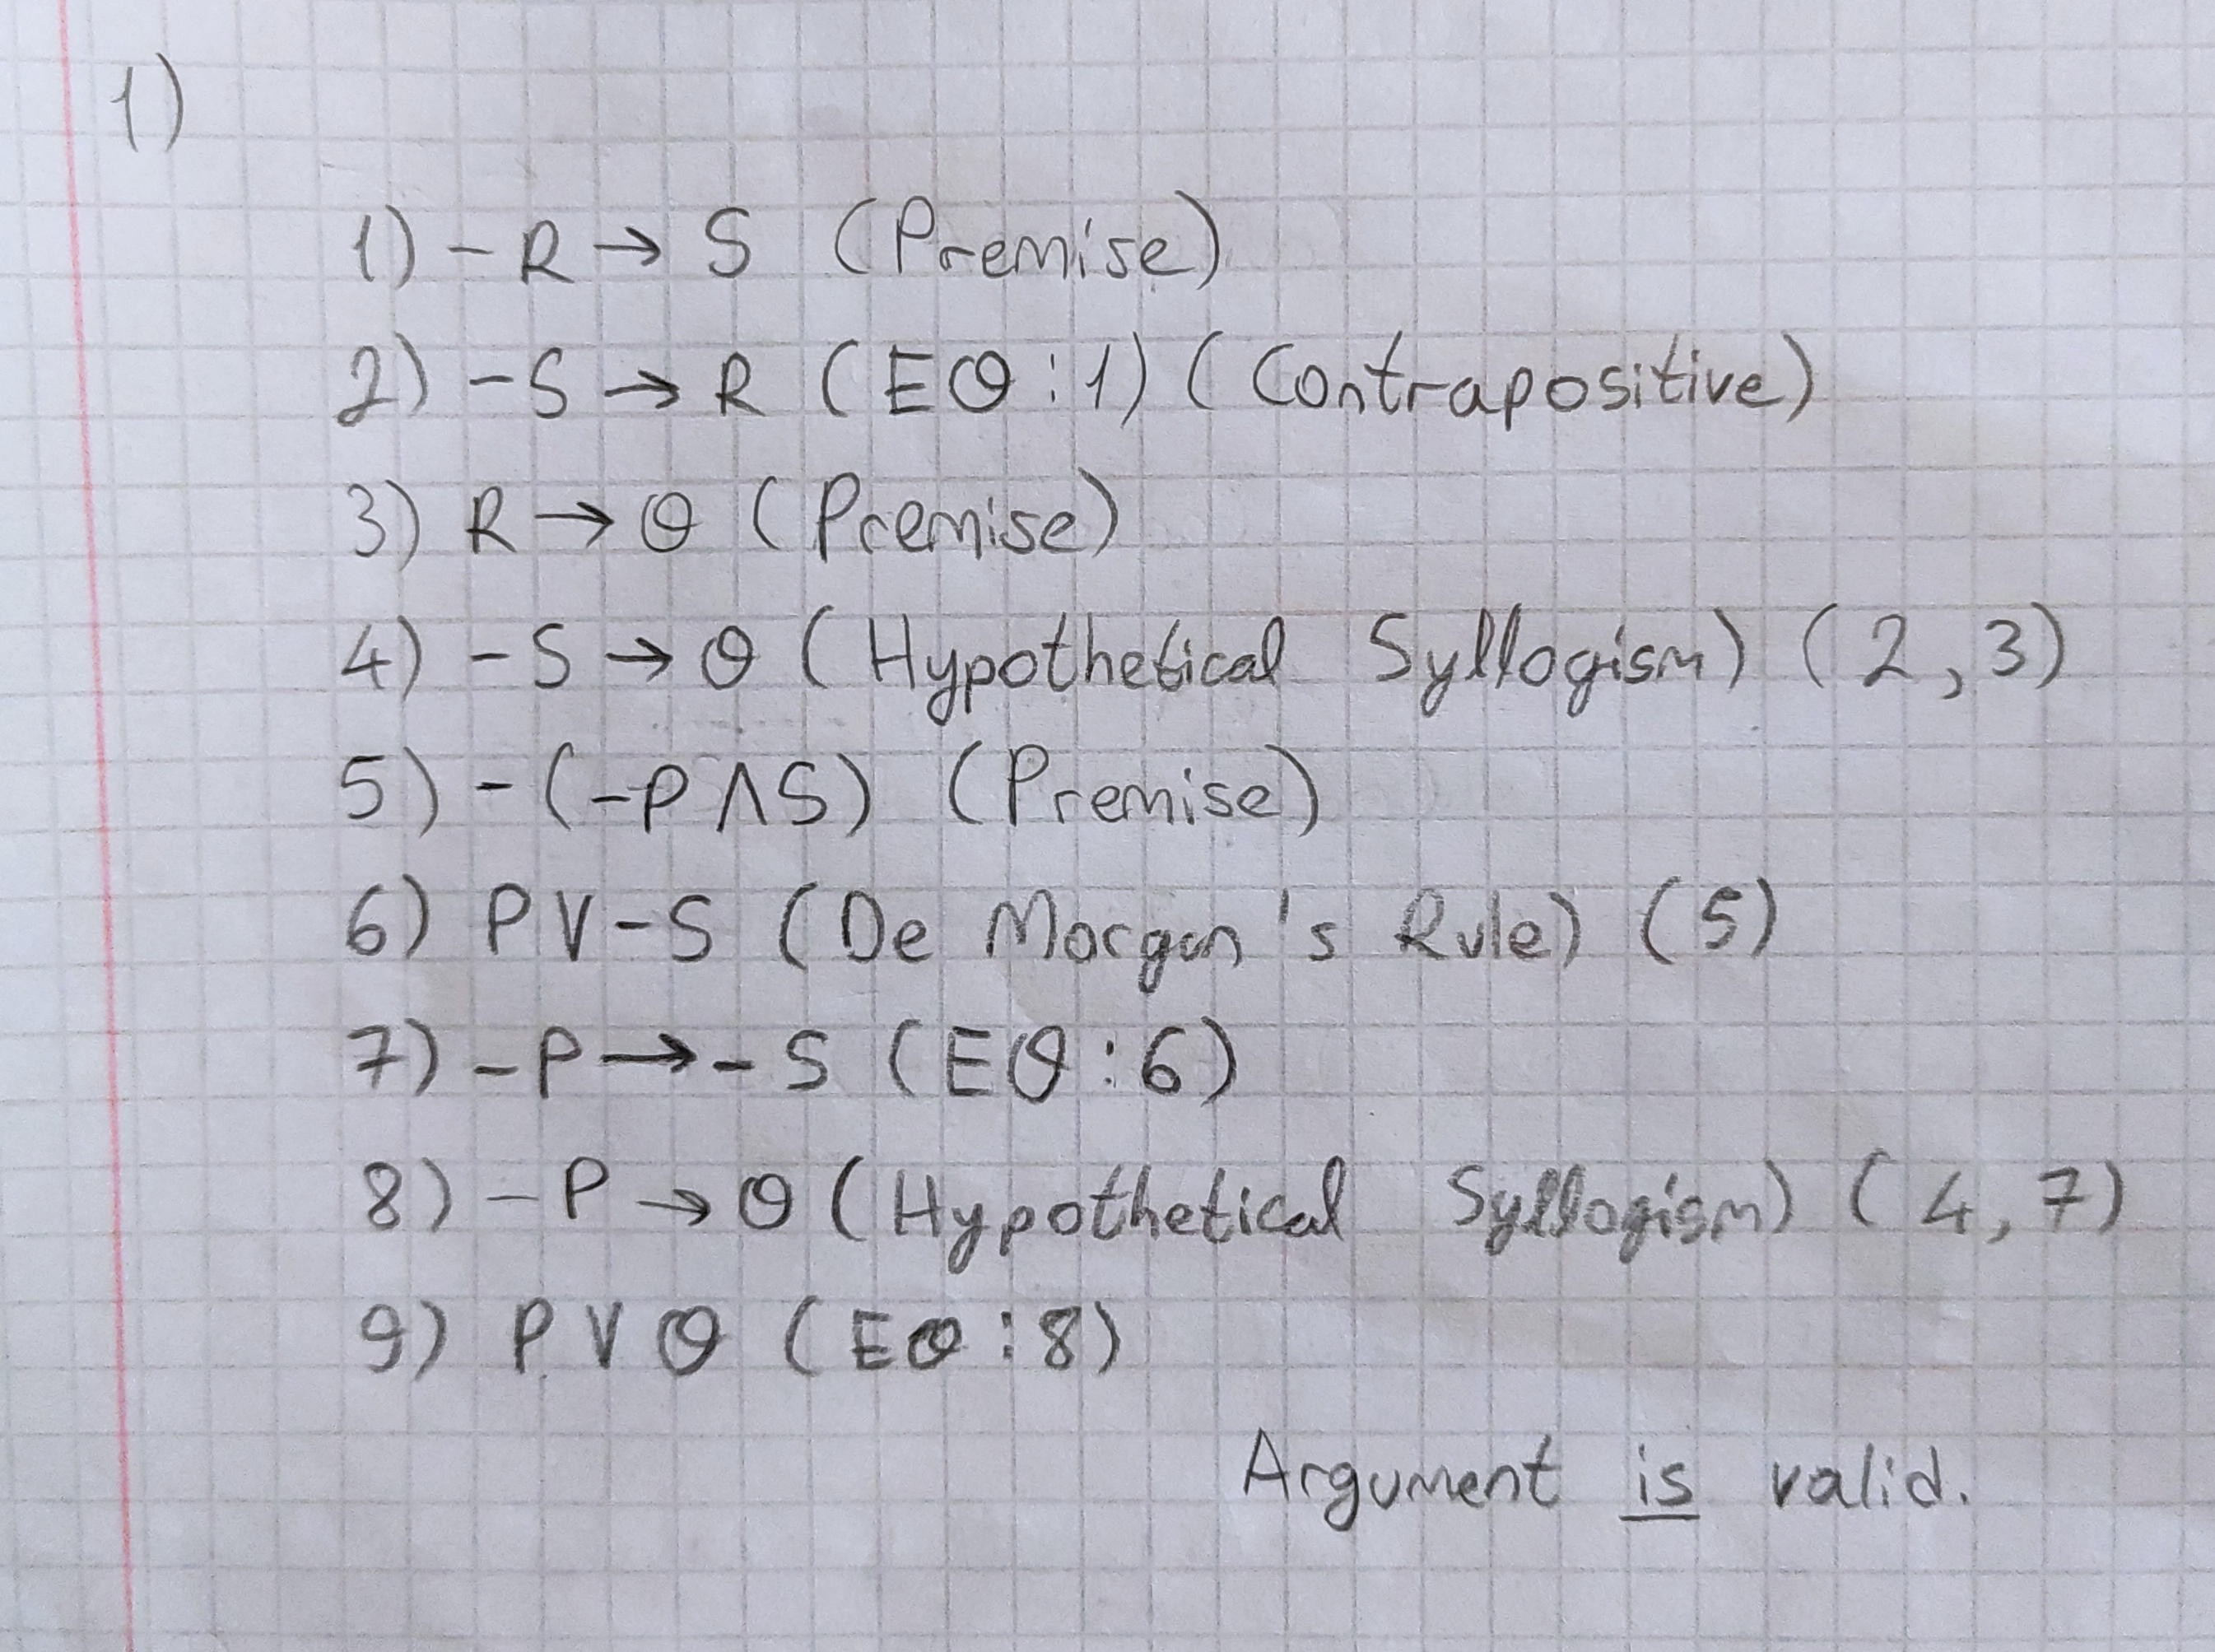 1)
1) -R → S (Premise)
2) -S → R (EQ:1) (Contrapositive)
3) R → Q (Premise)
4) -S → Q (Hypothetical Syllogism) (2,3)
5) -(-P ∧ S) (Premise)
6) P V -S (De Morgan's Rule) (5)
7) -P → -S (EQ:6)
8) -P → Q (Hypothetical Syllogism) (4,7)
9) P V Q (EQ:8)
Argument is valid.